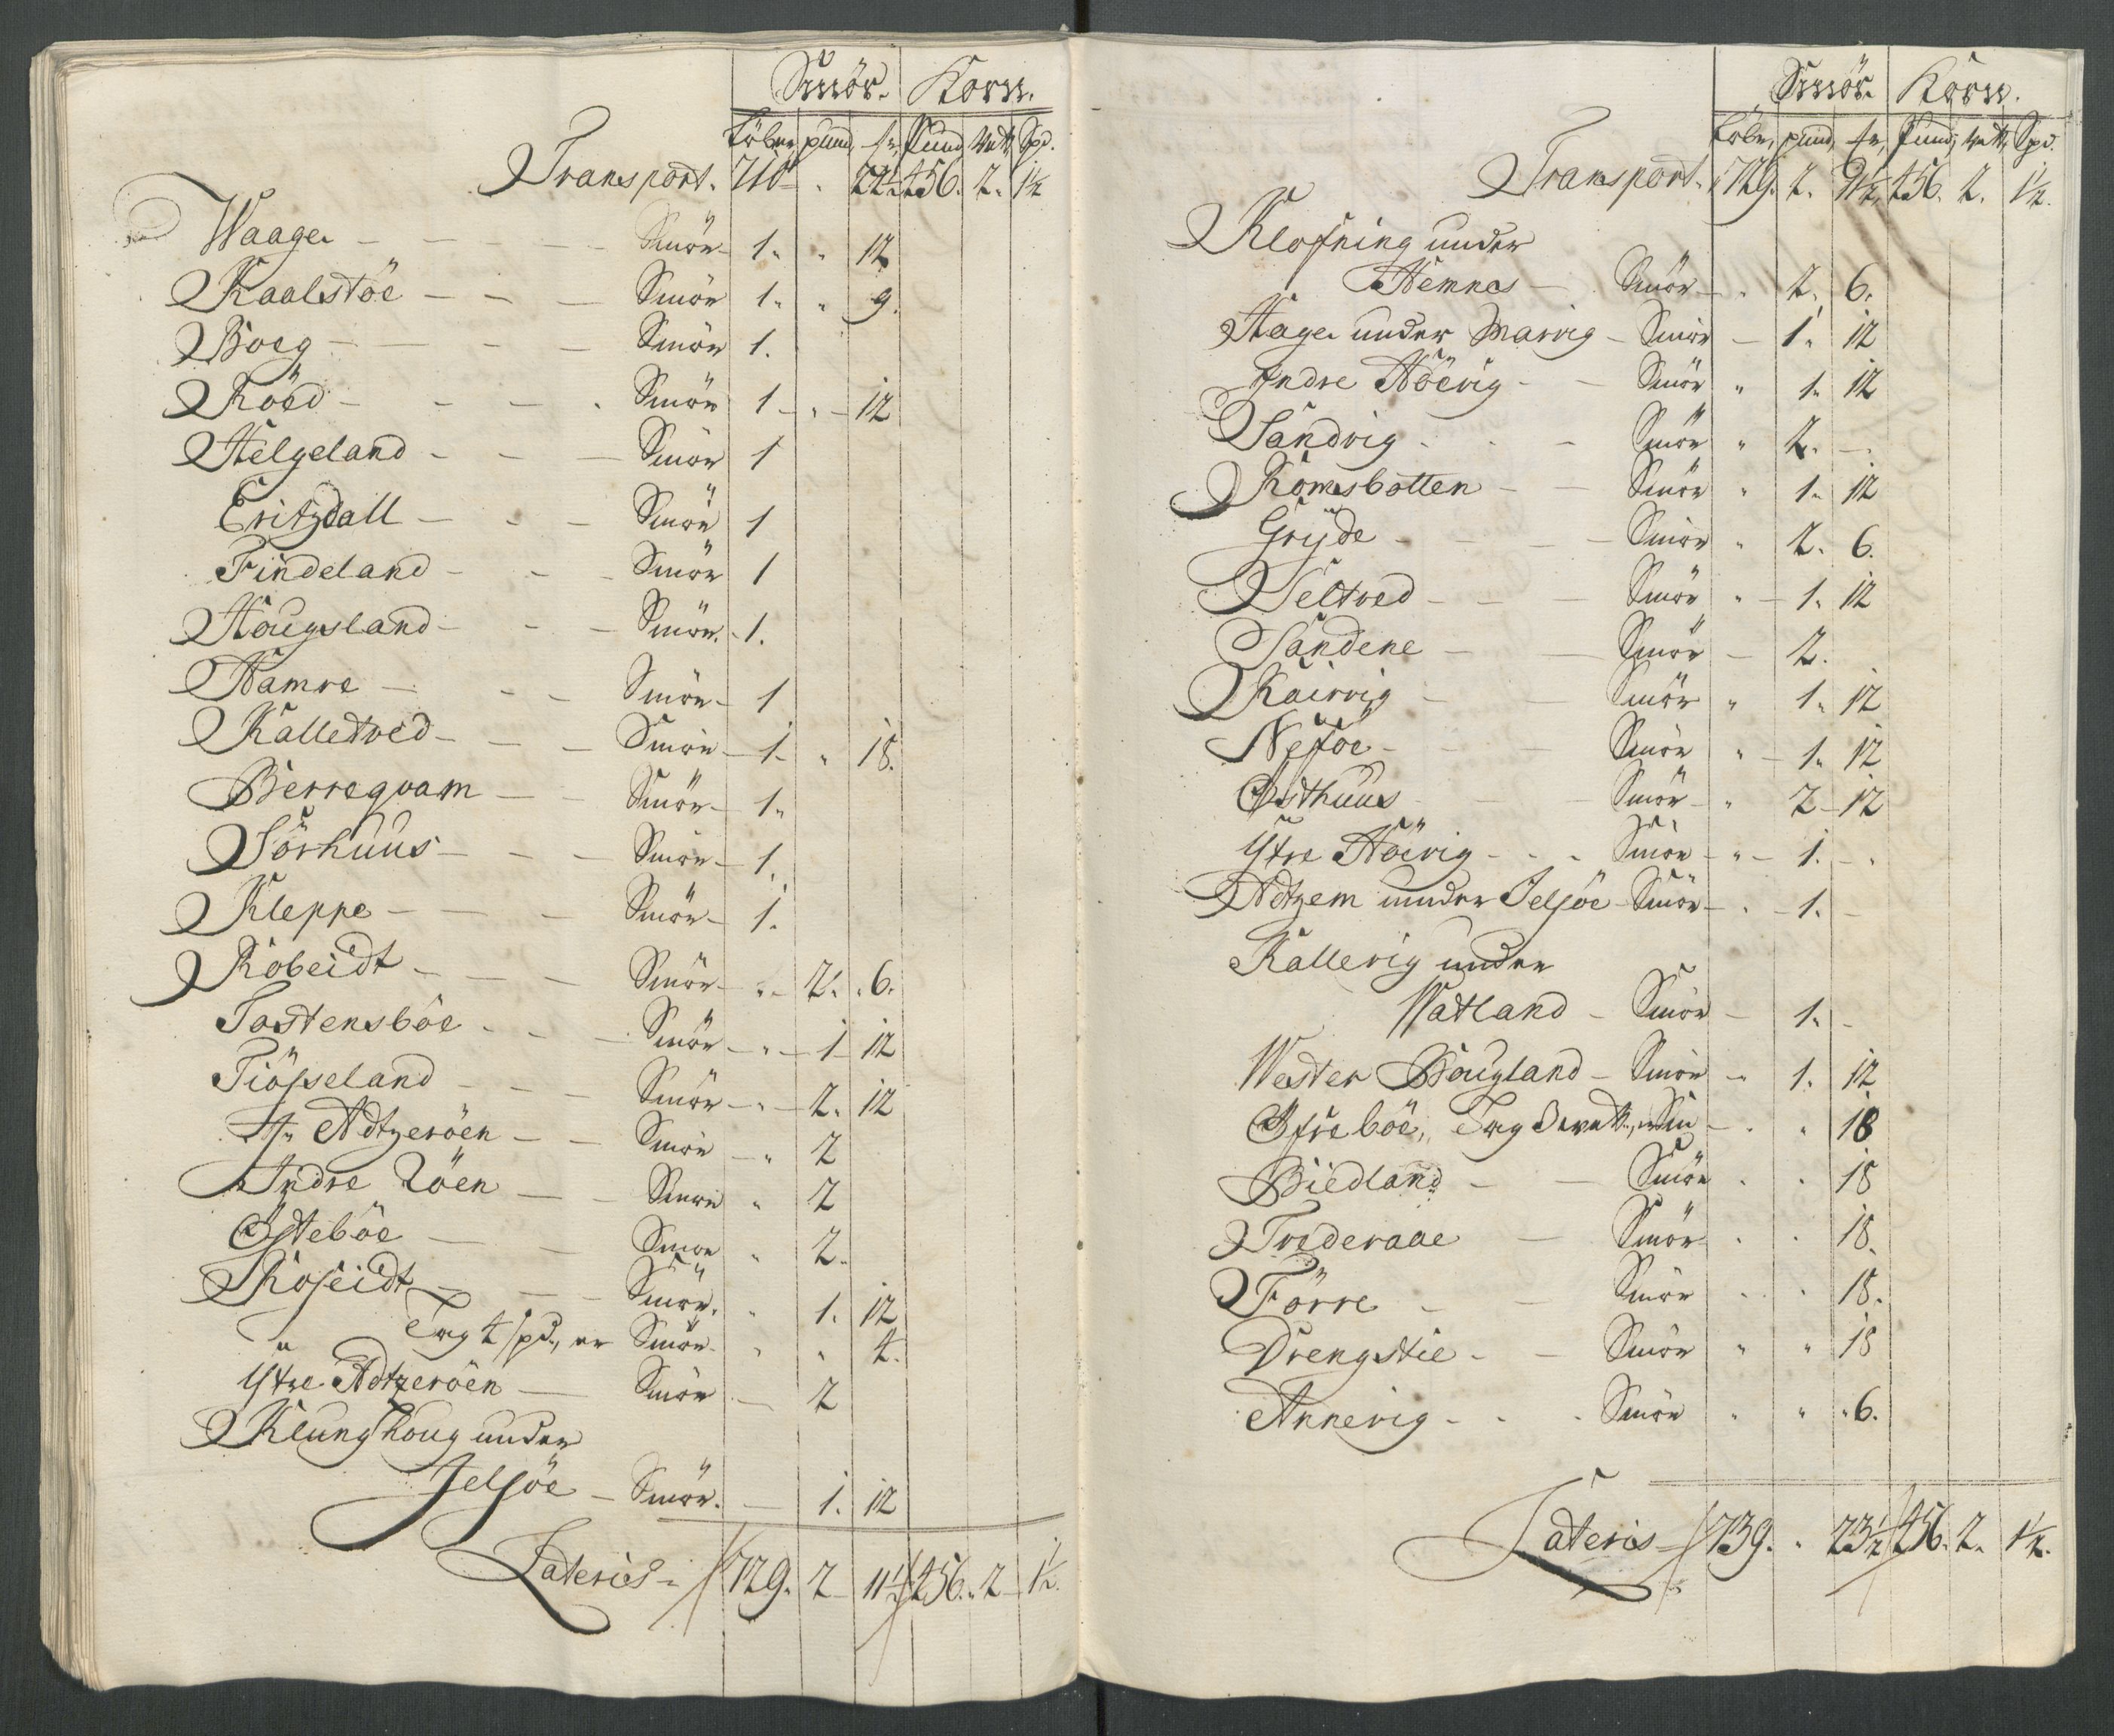 Smör. Korn.
Löber, pund, , Pund, Vett, Spd.
Transport. 710 - . 22½ 456. 2. 1½
Waage - Smör - 1. " 12
Kaalstöe - Smör 1. " 9.
Boeg - Smör 1.
Röed - Smör 1 - " - 12
Helgeland - Smör 1
Eritzdall - Smör 1
Findeland - Smör 1
Hougsland - Smör. - 1.
Hamre - Smör - 1
Kalletved - Smör - 1 - " 18.
Berreqvam - Smör - 1.
Sörhuus - Smör - 1.
Kleppe - Smör - 1.
Robeidt - Smör - " - 2. 6.
Tostensböe - Smör - " - 1 - 12
Tiösseland - Smör - " - 2. 12
Adtzeröen - Smör - " 2
Indre Röen - Smör " 2
Østeböe - Smör " 2.
Roseidt - Smör. " 1. 12
" Tng 4 spd., er Smör - " " 4.
Ytre Adtzeröen - Smör - 2
Klungthoug under
Jelsöe - Smör. - 1. 12
Lateris - 729. 2 - 11½ 456. 2 - 1½.
Smör. Korn.
Löber, pund, , Pund, Vett, Spd.
Transport. 729. 2. 11½ 456. 2. 1½.
Klofning under
Hemnes - Smör - . 2. 6.
Hage under Marvig - Smör - 1. 12
Indre Höevig - Smör " 1. 12
Sandvig - Smör " 2. -
Romsbotten - Smör " 1. 12
Gryde - Smör " 2. 6.
Seltved - Smör " - 1. 12
Sandene - Smör - 2.
Kairvig - Smör " 1. 12
Nesöe - Smör " - 1. 12
Østhuus - Smör - " 2 - 12
Ytre Höevig - Smör - " - 1. - .
Adtzem under Jelsöe - Smör - . - 1. -
Kallevig under
Watland - Smör - 1. -
Wester Bougland - Smör - 1. 12
Ofreböe, Smör - . " 18
Biedland - Smör . . 18
Trederaae - Smör . . 18.
Förre - Smör . . 18.
Drengstie - Smör " " 18
Annevig - Smör " " 6.
Lateris - 739. . 23½ 456. 2. 1½.